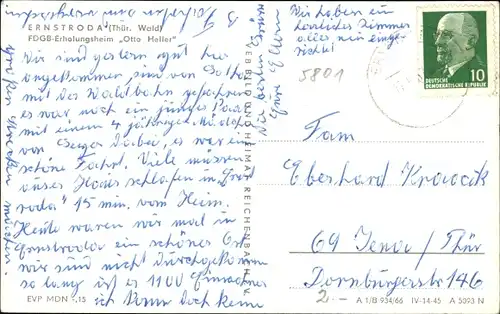 ERNSTRODA (Thür. Wald)
FDGB-Erholungsheim „Otto Heller"
Wir sind gestern gut hier
angekommen, sind von Gotha
mit der Waldbahn gefahren
es war noch ein junges Paar
mit einem 4 jährigen Mädel
von Gera dabei, es war ein
schöne Fahrt. Viele müssen
außer Haus schlafen in „Ernst
roda" 15 min. vom Heim.
Heute waren wir mal in
Ernstroda ein schöner Ort
wir sind nicht durchgekommen
so lang ist er 1100 Einwohner
ich kann doch keine
großen Strecken machen.
Wir haben ein
herrliches Zimmer
alles neu einge
richtet
5801
VEB BILD UND HEIMAT REICHENBACH I. V.
DEUTSCHE
DEMOKRATISCHE REPUBLIK
10
Fam
Eberhard
69 Jena/Thür
Dornburgerstr 146
2
EVP MDN -,15
A 1/B 934/66 IV-14-45 A 5093 N